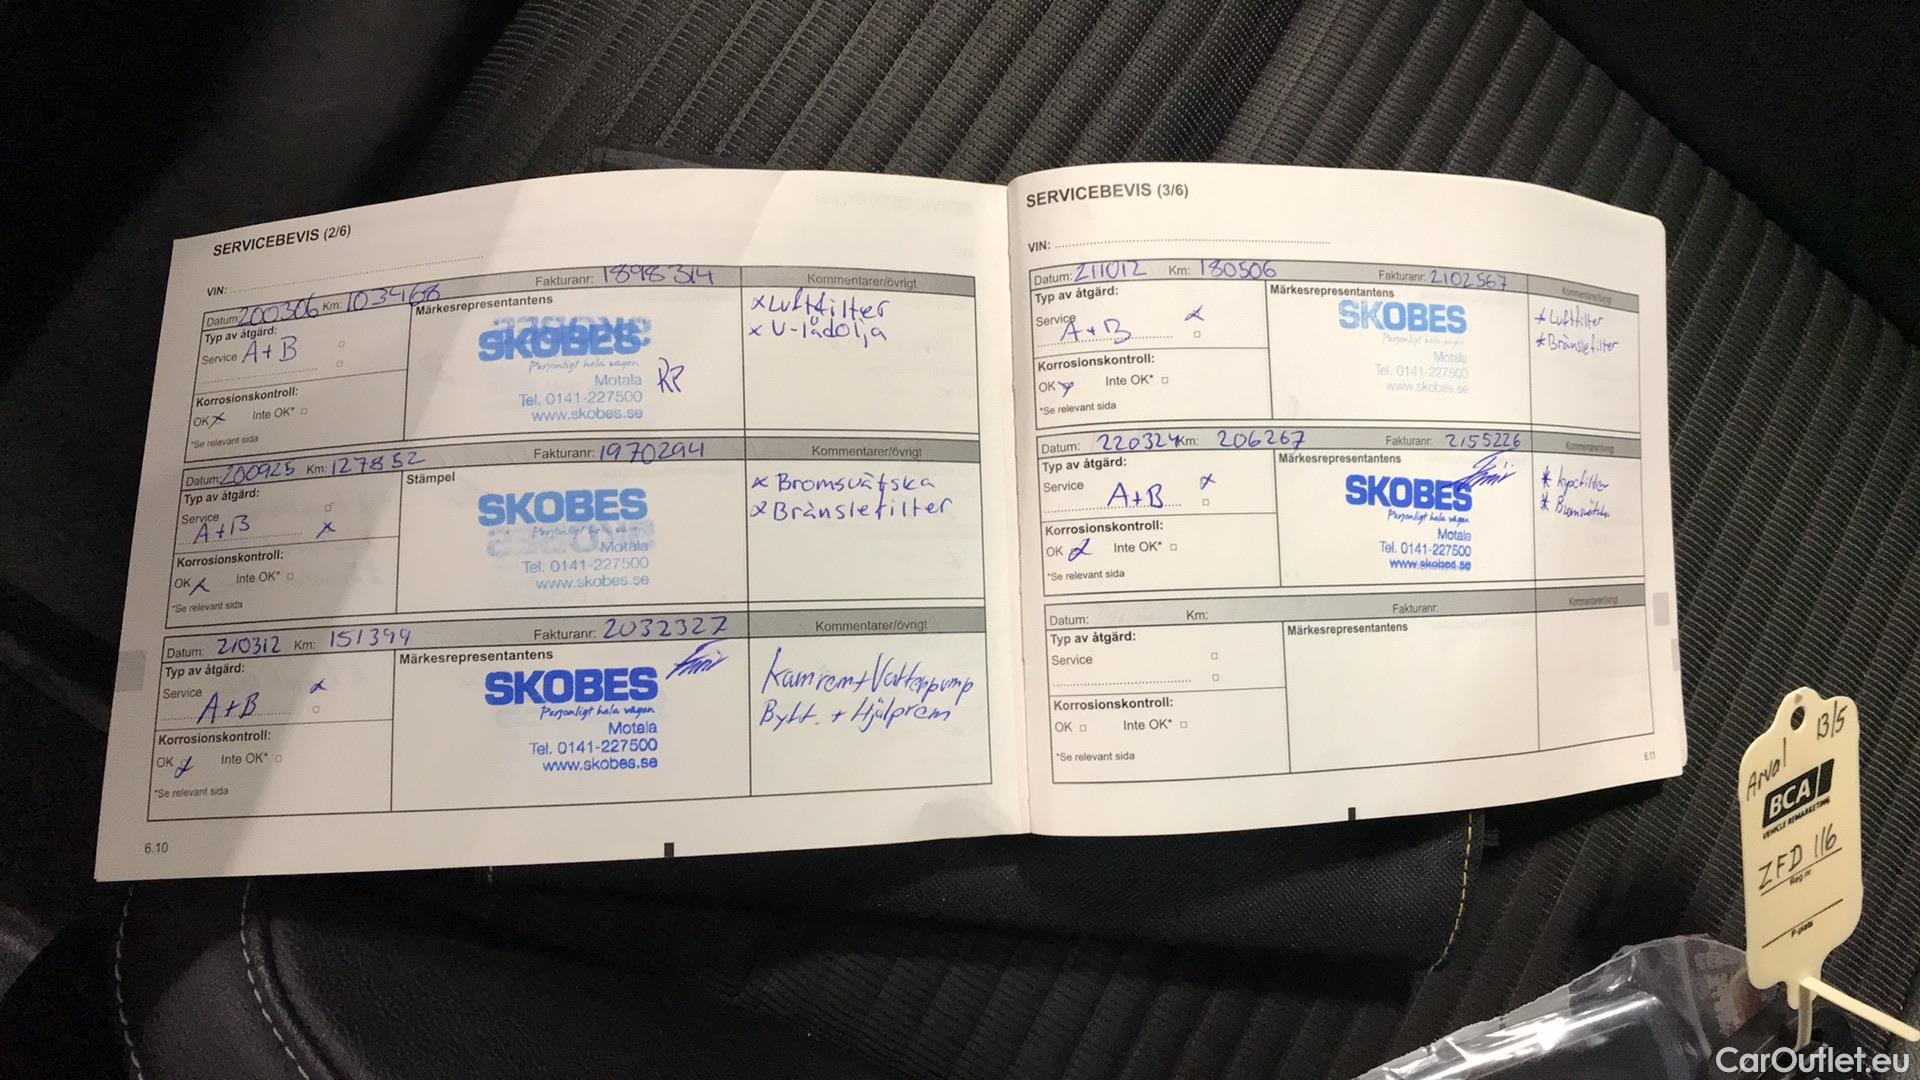 SERVICEBEVIS (2/6)
VIN:
Datum: 200306 Km: 103468 Fakturanr: 1898314 Kommentarer/övrigt
Typ av åtgärd: Märkesrepresentantens
Service A+B
SKOBES
Personligt hela vägen
Motala RP
Tel. 0141-227500
www.skobes.se
Korrosionskontroll:
OK x Inte OK*
*Se relevant sida
x Luftfilter
x V-lådolja
Datum: 200925 Km: 127852 Fakturanr: 1970294 Kommentarer/övrigt
Typ av åtgärd: Stämpel
Service
A+B x
SKOBES
Personligt hela vägen
Motala
Tel. 0141-227500
www.skobes.se
Korrosionskontroll:
OK x Inte OK*
*Se relevant sida
x Bromsvätska
x Bränslefilter
Datum: 210312 Km: 151399 Fakturanr: 2032327 Kommentarer/övrigt
Typ av åtgärd: Märkesrepresentantens
Service x
A+B
SKOBES
Personligt hela vägen
Motala
Tel. 0141-227500
www.skobes.se
Korrosionskontroll:
OK x Inte OK*
*Se relevant sida
Kamrem+Vattenpump
Bytt. + Hjälprem
6.10
SERVICEBEVIS (3/6)
VIN:
Datum: 211012 Km: 180506 Fakturanr: 2102567 Kommentarer/övrigt
Typ av åtgärd: Märkesrepresentantens
Service x
A+B
SKOBES
Personligt hela vägen
Motala
Tel. 0141-227500
www.skobes.se
Korrosionskontroll:
OK x Inte OK*
*Se relevant sida
* Luftfilter
* Bränslefilter
Datum: 220324 Km: 206267 Fakturanr: 2155226 Kommentarer/övrigt
Typ av åtgärd: Märkesrepresentantens
Service x
A+B
SKOBES
Personligt hela vägen
Motala
Tel. 0141-227500
www.skobes.se
Korrosionskontroll:
OK x Inte OK*
*Se relevant sida
* Kupefilter
* Bromsvätska
Datum: Km: Fakturanr: Kommentarer/övrigt
Typ av åtgärd: Märkesrepresentantens
Service
Korrosionskontroll:
OK Inte OK*
*Se relevant sida
6.11
Arval 13/5
BCA
VEHICLE REMARKETING
ZFD 116
Reg.nr
P-plats
CarOutlet.eu